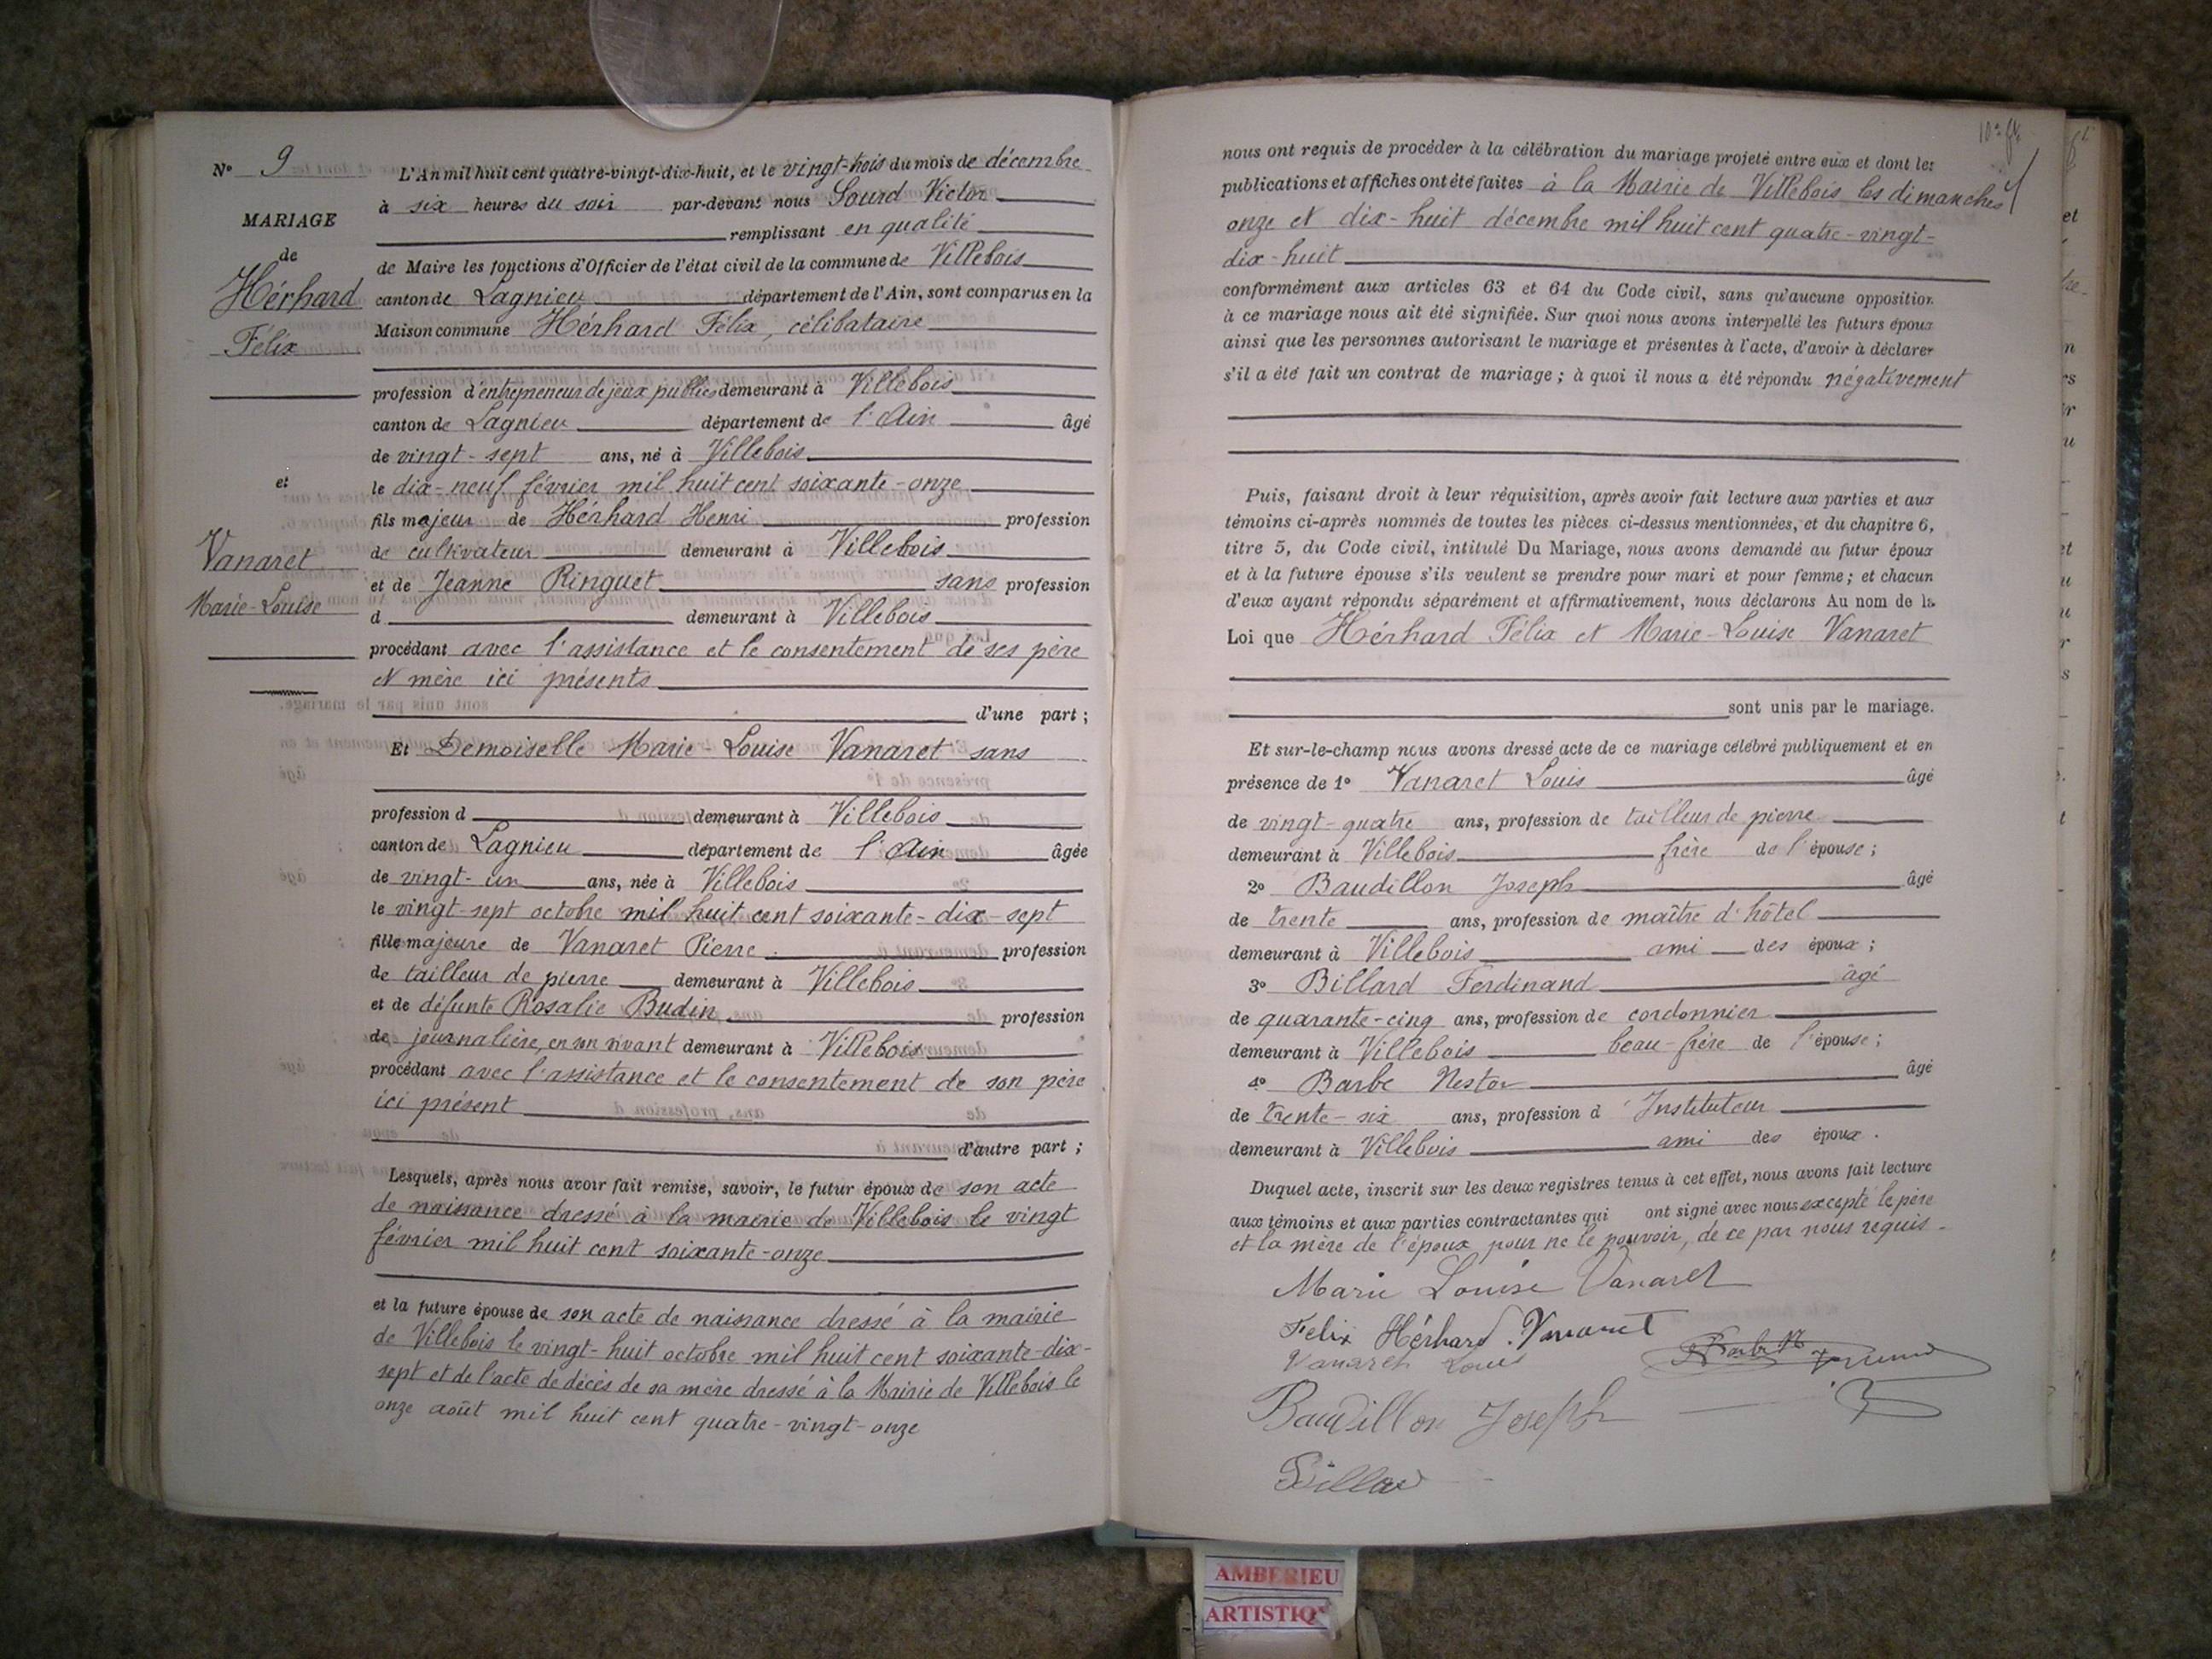 N° 9
MARIAGE
de
Hérhard
Félix
et
Vanaret
Marie-Louise
L'An mil huit cent quatre-vingt-dix-huit, et le vingt-trois du mois de décembre
à six heures du soir par-devant nous Sourd Victor
remplissant en qualité
de Maire les fonctions d'Officier de l'état civil de la commune de Villebois
canton de Lagnieu département de l'Ain, sont comparus en la
Maison commune Hérhard Félix, célibataire
profession d'entrepreneur de jeux publics demeurant à Villebois
canton de Lagnieu département de l'Ain âgé
de vingt-sept ans, né à Villebois
le dix-neuf février mil huit cent soixante-onze
fils majeur de Hérhard Henri profession
de cultivateur demeurant à Villebois
et de Jeanne Ringuet sans profession
d demeurant à Villebois
procédant avec l'assistance et le consentement de ses père
et mère ici présents
d'une part ;
Et Demoiselle Marie-Louise Vanaret sans
profession d demeurant à Villebois
canton de Lagnieu département de l'Ain âgée
de vingt-un ans, née à Villebois
le vingt-sept octobre mil huit cent soixante-dix-sept
fille majeure de Vanaret Pierre profession
de tailleur de pierre demeurant à Villebois
et de défunte Rosalie Budin profession
de journalière, en son vivant demeurant à Villebois
procédant avec l'assistance et le consentement de son père
ici présent
d'autre part ;
Lesquels, après nous avoir fait remise, savoir, le futur époux de son acte
de naissance dressé à la mairie de Villebois le vingt
février mil huit cent soixante-onze
et la future épouse de son acte de naissance dressé à la mairie
de Villebois le vingt-huit octobre mil huit cent soixante-dix-
sept et de l'acte de décès de sa mère dressé à la Mairie de Villebois le
onze août mil huit cent quatre-vingt-onze
nous ont requis de procéder à la célébration du mariage projeté entre eux et dont les
publications et affiches ont été faites à la Mairie de Villebois les dimanches
onze et dix-huit décembre mil huit cent quatre-vingt-
dix-huit
conformément aux articles 63 et 64 du Code civil, sans qu'aucune opposition
à ce mariage nous ait été signifiée. Sur quoi nous avons interpellé les futurs époux
ainsi que les personnes autorisant le mariage et présentes à l'acte, d'avoir à déclarer
s'il a été fait un contrat de mariage ; à quoi il nous a été répondu négativement
Puis, faisant droit à leur réquisition, après avoir fait lecture aux parties et aux
témoins ci-après nommés de toutes les pièces ci-dessus mentionnées, et du chapitre 6,
titre 5, du Code civil, intitulé Du Mariage, nous avons demandé au futur époux
et à la future épouse s'ils veulent se prendre pour mari et pour femme ; et chacun
d'eux ayant répondu séparément et affirmativement, nous déclarons Au nom de la
Loi que Hérhard Félix et Marie-Louise Vanaret
sont unis par le mariage.
Et sur-le-champ nous avons dressé acte de ce mariage célébré publiquement et en
présence de 1° Vanaret Louis âgé
de vingt-quatre ans, profession de tailleur de pierre
demeurant à Villebois frère de l'épouse ;
2° Baudillon Joseph âgé
de trente ans, profession de maître d'hôtel
demeurant à Villebois ami des époux ;
3° Billard Ferdinand âgé
de quarante-cinq ans, profession de cordonnier
demeurant à Villebois beau-frère de l'épouse ;
4° Barbe Nestor âgé
de trente-six ans, profession d'Instituteur
demeurant à Villebois ami des époux.
Duquel acte, inscrit sur les deux registres tenus à cet effet, nous avons fait lecture
aux témoins et aux parties contractantes qui ont signé avec nous excepté le père
et la mère de l'époux pour ne le pouvoir, de ce par nous requis -
Marie Louise Vanaret
Felix Hérhard. Vanaret
Vanaret Louis
Baudillon Joseph
AMBERIEU
ARTISTIQ